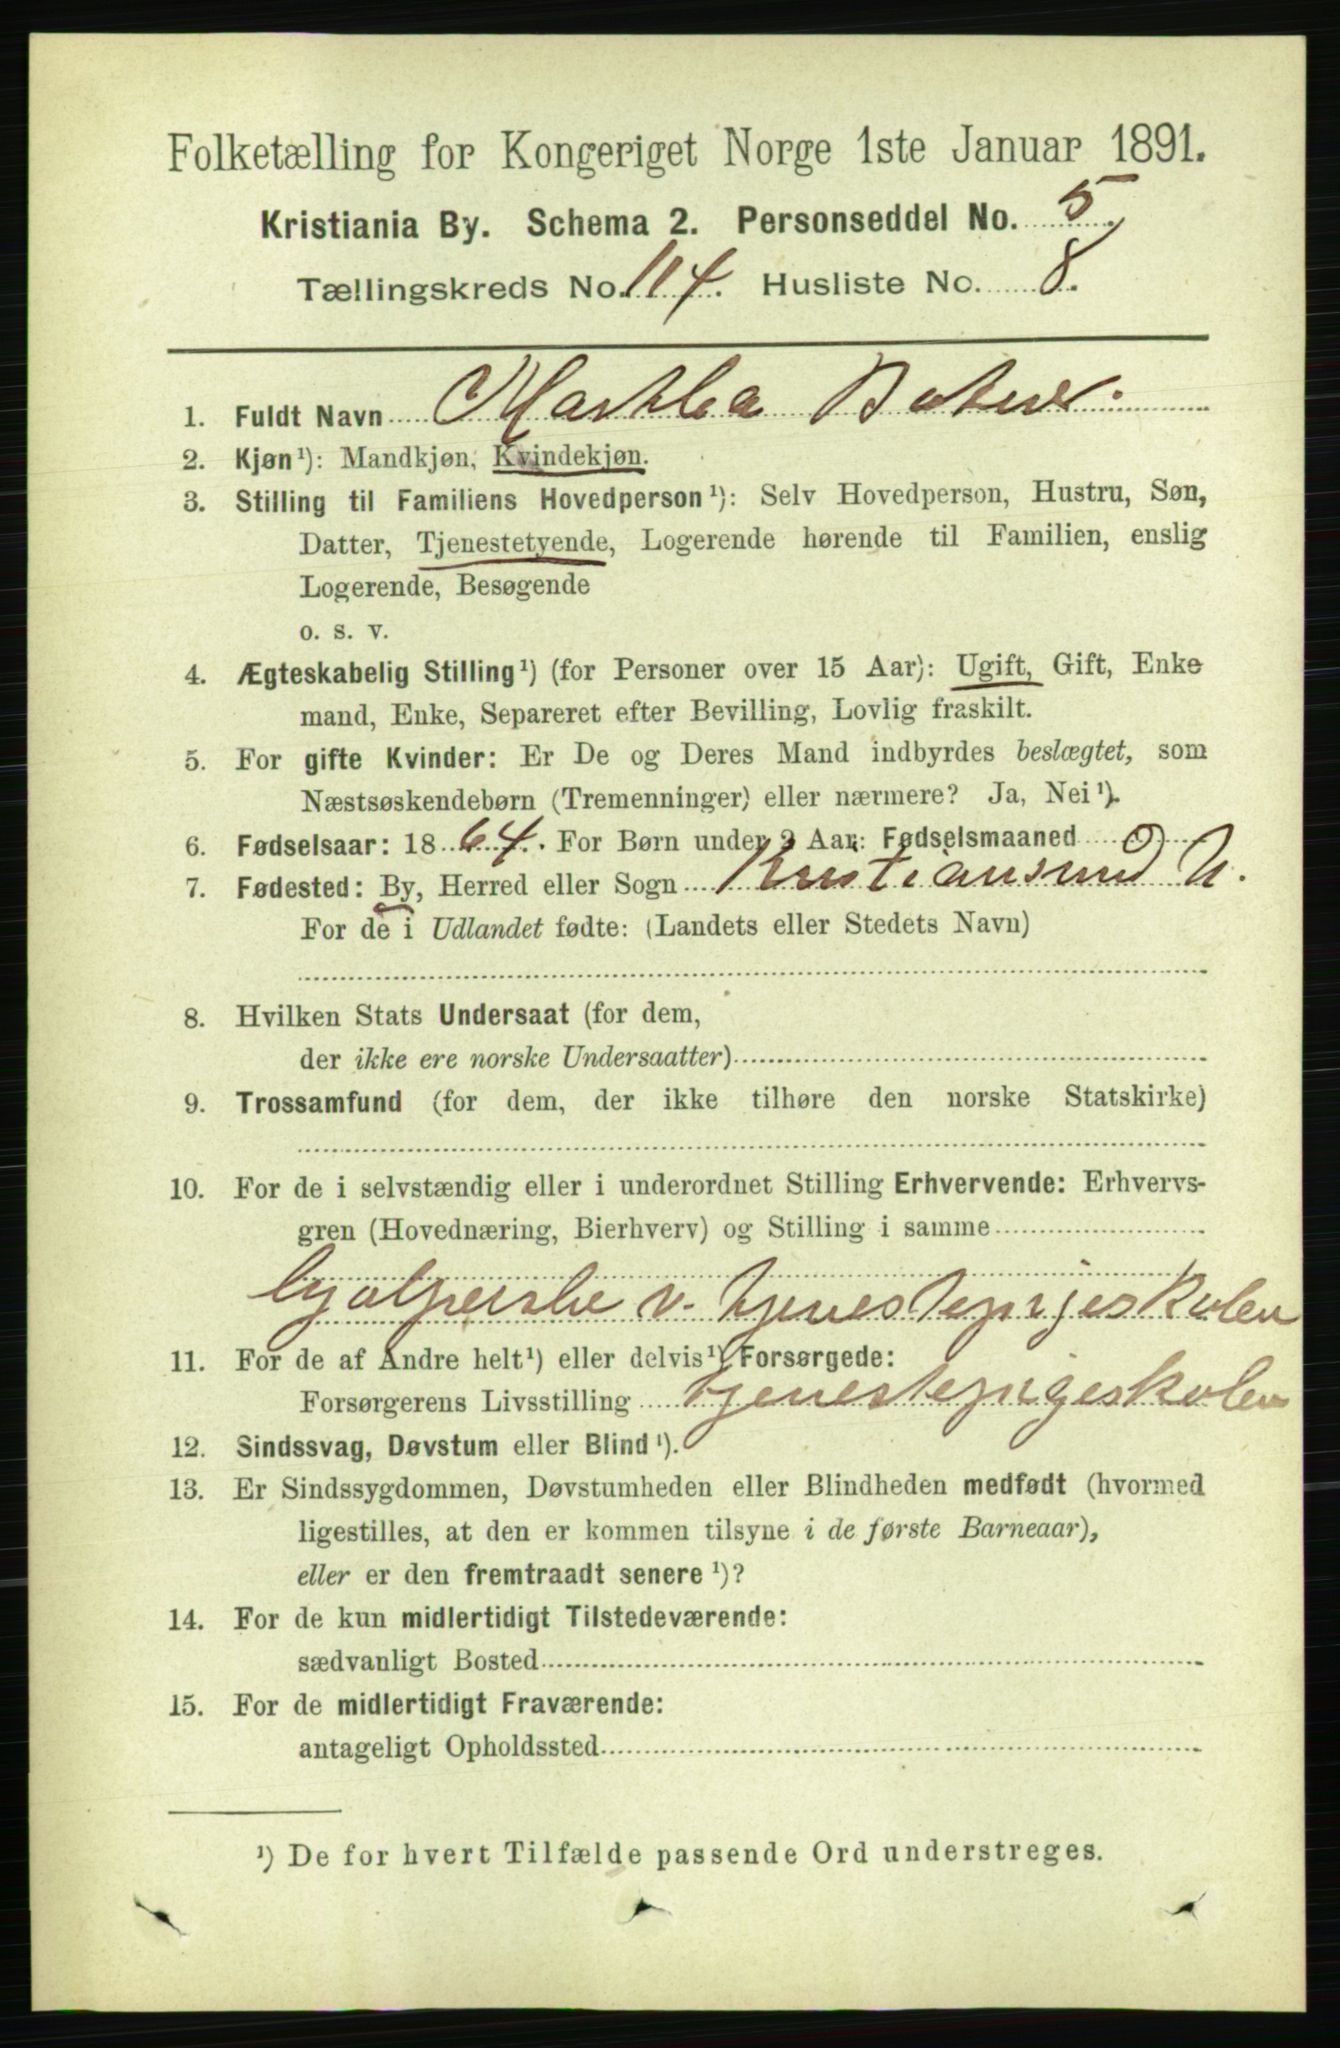 Folketælling for Kongeriget Norge 1ste Januar 1891.
Kristiania By. Schema 2. Personseddel No. 5
Tællingskreds No. 114. Husliste No. 8.
1. Fuldt Navn Martha
2. Kjøn¹): Mandkjøn, Kvindekjøn.
3. Stilling til Familiens Hovedperson¹): Selv Hovedperson, Hustru, Søn,
Datter, Tjenestetyende, Logerende hørende til Familien, enslig
Logerende, Besøgende
o. s. v.
4. Ægteskabelig Stilling¹) (for Personer over 15 Aar): Ugift, Gift, Enke
mand, Enke, Separeret efter Bevilling, Lovlig fraskilt.
5. For gifte Kvinder: Er De og Deres Mand indbyrdes beslægtet, som
Næstsøskendebørn (Tremenninger) eller nærmere? Ja, Nei¹).
6. Fødselsaar: 1864. For Børn under 2 Aar: Fødselsmaaned
7. Fødested: By, Herred eller Sogn Kristiansund N.
For de i Udlandet fødte: (Landets eller Stedets Navn)
8. Hvilken Stats Undersaat (for dem,
der ikke ere norske Undersaatter)
9. Trossamfund (for dem, der ikke tilhøre den norske Statskirke)
10. For de i selvstændig eller i underordnet Stilling Erhvervende: Erhvervs-
gren (Hovednæring, Bierhverv) og Stilling i samme
hjælperske v. tjenestepigeskolen
11. For de af Andre helt¹) eller delvis¹) Forsørgede:
Forsørgerens Livsstilling tjenestepigeskolen
12. Sindssvag, Døvstum eller Blind¹).
13. Er Sindssygdommen, Døvstumheden eller Blindheden medfødt (hvormed
ligestilles, at den er kommen tilsyne i de første Barneaar),
eller er den fremtraadt senere¹)?
14. For de kun midlertidigt Tilstedeværende:
sædvanligt Bosted
15. For de midlertidigt Fraværende:
antageligt Opholdssted
¹) De for hvert Tilfælde passende Ord understreges.